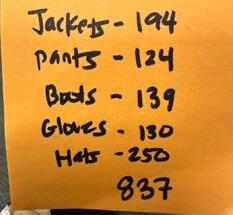 Jackets - 194
pants - 124
Boots - 139
Gloves - 130
Hats - 250
837